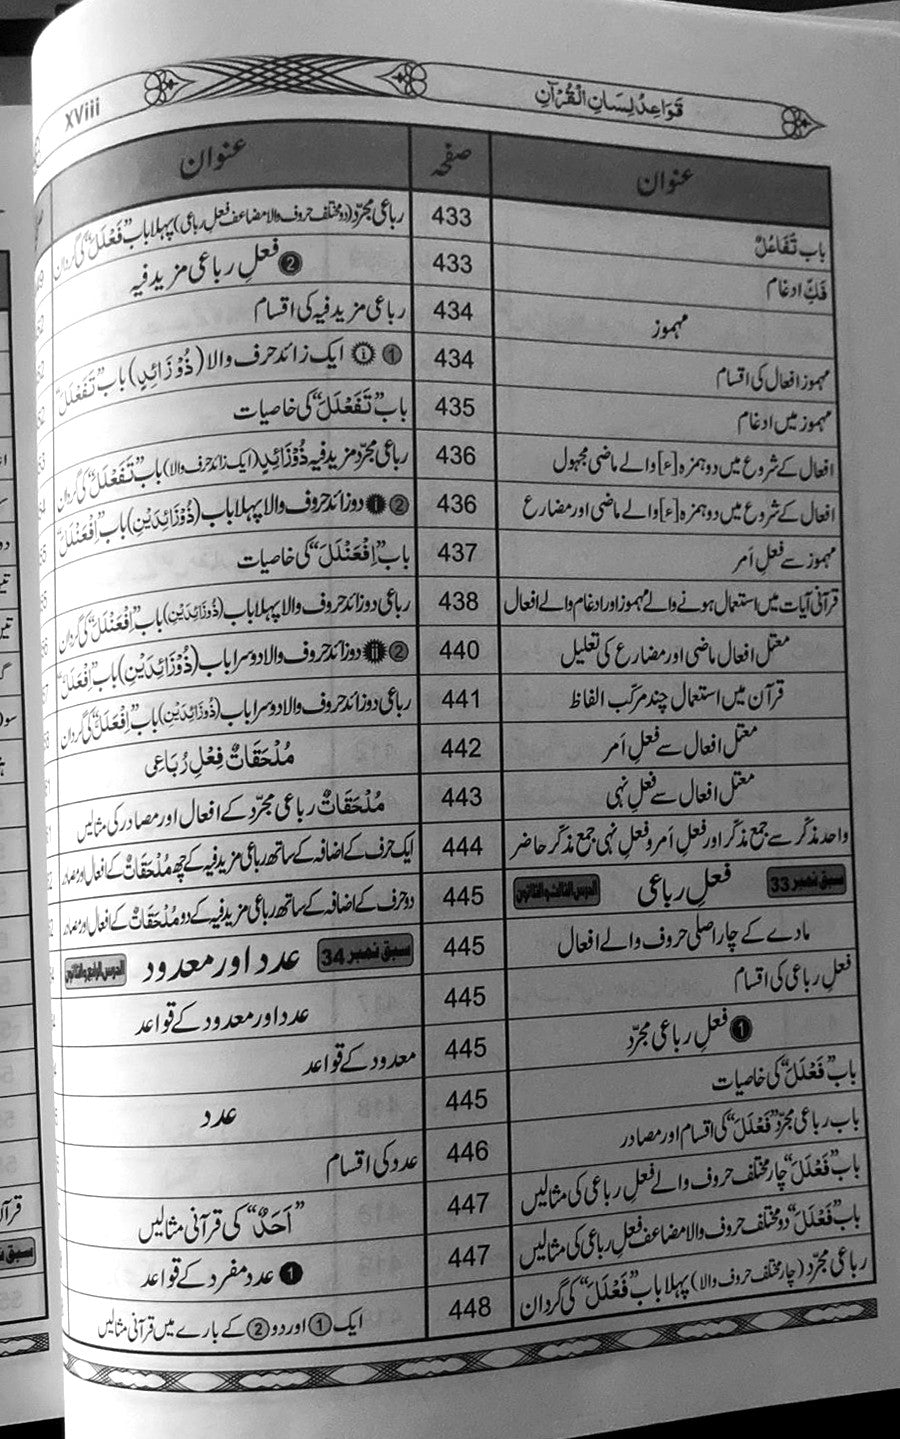 xviii
قَوَاعِدُ لِسَانِ الْقُرْآنِ
عنوان
صفحہ
باب تَفَاعُلٌ
433
فَکِّ ادغام
433
مہموز
434
مہموز افعال کی اقسام
434
مہموز میں ادغام
435
افعال کے شروع میں دو ہمزہ [ء] والے ماضی مجہول
436
افعال کے شروع میں دو ہمزہ [ء] والے ماضی اور مضارع
436
مہموز سے فعلِ اَمر
437
قرآنی آیات میں استعمال ہونے والے مہموز اور ادغام والے افعال
438
معتل افعال ماضی اور مضارع کی تعلیل
440
قرآن میں استعمال چند مرکّب الفاظ
441
معتل افعال سے فعلِ اَمر
442
معتل افعال سے فعلِ نہی
443
واحد مذکّر سے جمع مذکّر اور فعلِ اَمر و فعلِ نہی جمع مذکّر حاضر
444
سبق نمبر 33 فعلِ رباعی الدرس الثالث والثلاثون
445
مادے کے چار اصلی حروف والے افعال
445
فعلِ رباعی کی اقسام
445
❶ فعلِ رباعی مجرّد
445
باب ”فَعْلَلَ“ کی خاصیات
445
باب رباعی مجرّد ”فَعْلَلَ“ کی اقسام اور مصادر
446
باب ”فَعْلَلَ“ چار مختلف حروف والے فعلِ رباعی کی مثالیں
447
باب ”فَعْلَلَ“ دو مختلف حروف والا مضاعف فعلِ رباعی کی مثالیں
447
رباعی مجرّد (چار مختلف حروف والا) پہلا باب ”فَعْلَلَ“ کی گردان
448
عنوان
رباعی مجرّد (دو مختلف حروف والا مضاعف فعلِ رباعی) پہلا باب ”فَعْلَلَ“ کی گردان
❷ فعلِ رباعی مزید فیہ
رباعی مزید فیہ کی اقسام
① ⅰ ایک زائد حرف والا (ذُوْ زَائِدٍ) باب ”تَفَعْلَلَ“
باب ”تَفَعْلَلَ“ کی خاصیات
رباعی مجرّد مزید فیہ ذُوْزَائِدٍ (ایک زائد حرف والا) باب ”تَفَعْلَلَ“ کی گردان
② ⅰ دو زائد حروف والا پہلا باب (ذُوْزَائِدَیْنِ) باب ”اِفْعَنْلَلَ“
باب ”اِفْعَنْلَلَ“ کی خاصیات
رباعی دو زائد حروف والا پہلا باب (ذُوْزَائِدَیْنِ) باب ”اِفْعَنْلَلَ“ کی گردان
② ⅱ دو زائد حروف والا دوسرا باب (ذُوْزَائِدَیْنِ) باب ”اِفْعَلَلَّ“
رباعی دو زائد حروف والا دوسرا باب (ذُوْزَائِدَیْنِ) باب ”اِفْعَلَلَّ“ کی گردان
مُلْحَقَاتٌ فِعْلِ رُبَاعِی
مُلْحَقَاتٌ رباعی مجرّد کے افعال اور مصادر کی مثالیں
ایک حرف کے اضافہ کے ساتھ رباعی مزید فیہ کے چھ مُلْحَقَاتٌ کے افعال اور مصادر
دو حرف کے اضافہ کے ساتھ رباعی مزید فیہ کے دو مُلْحَقَاتٌ کے افعال اور مصادر
سبق نمبر 34 عدد اور معدود الدرس الرابع والثلاثون
عدد اور معدود کے قواعد
معدود کے قواعد
عدد
عدد کی اقسام
”اَحَدٌ“ کی قرآنی مثالیں
❶ عدد مفرد کے قواعد
ایک ① اور دو ② کے بارے میں قرآنی مثالیں